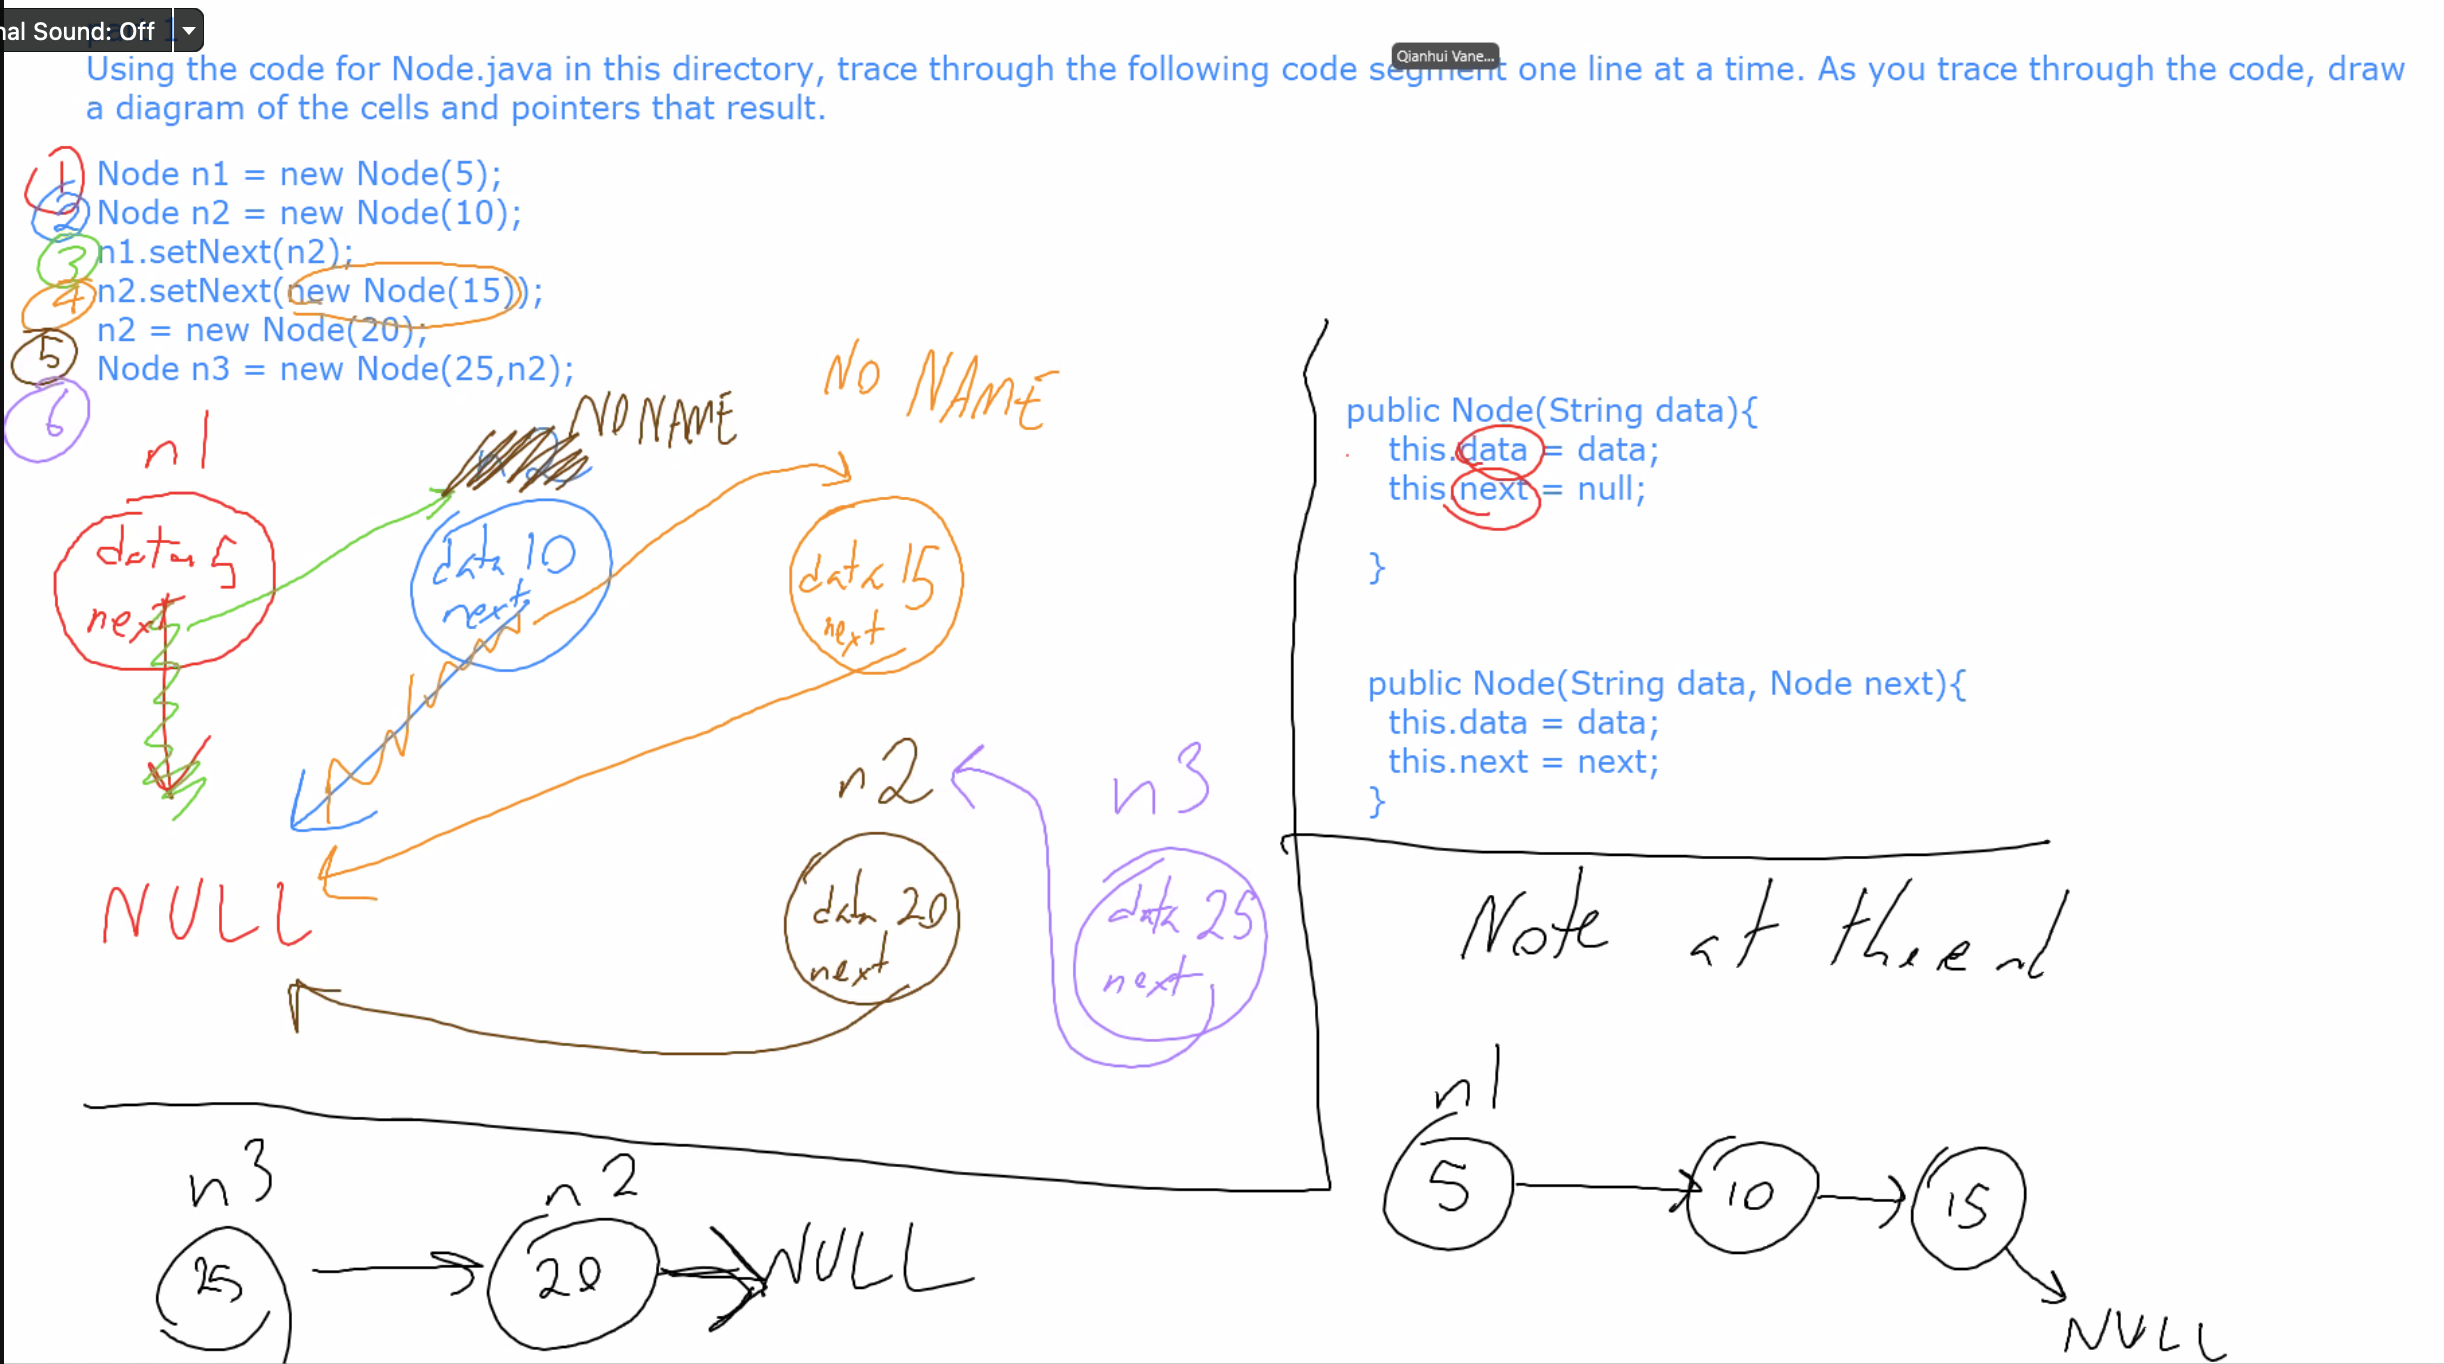 nal Sound: Off
Qianhui Vane...
Using the code for Node.java in this directory, trace through the following code segment one line at a time. As you trace through the code, draw
a diagram of the cells and pointers that result.
1 Node n1 = new Node(5);
2 Node n2 = new Node(10);
3 n1.setNext(n2);
4 n2.setNext(new Node(15));
5 n2 = new Node(20);
6 Node n3 = new Node(25,n2);
n1
NO NAME
NO NAME
data 5
next
data 10
next
data 15
next
NULL
n2
data 20
next
n3
data 25
next
n3
n2
25
20
NULL
public Node(String data){
this.data = data;
this.next = null;
}
public Node(String data, Node next){
this.data = data;
this.next = next;
}
Note at the end
n1
5
10
15
NULL